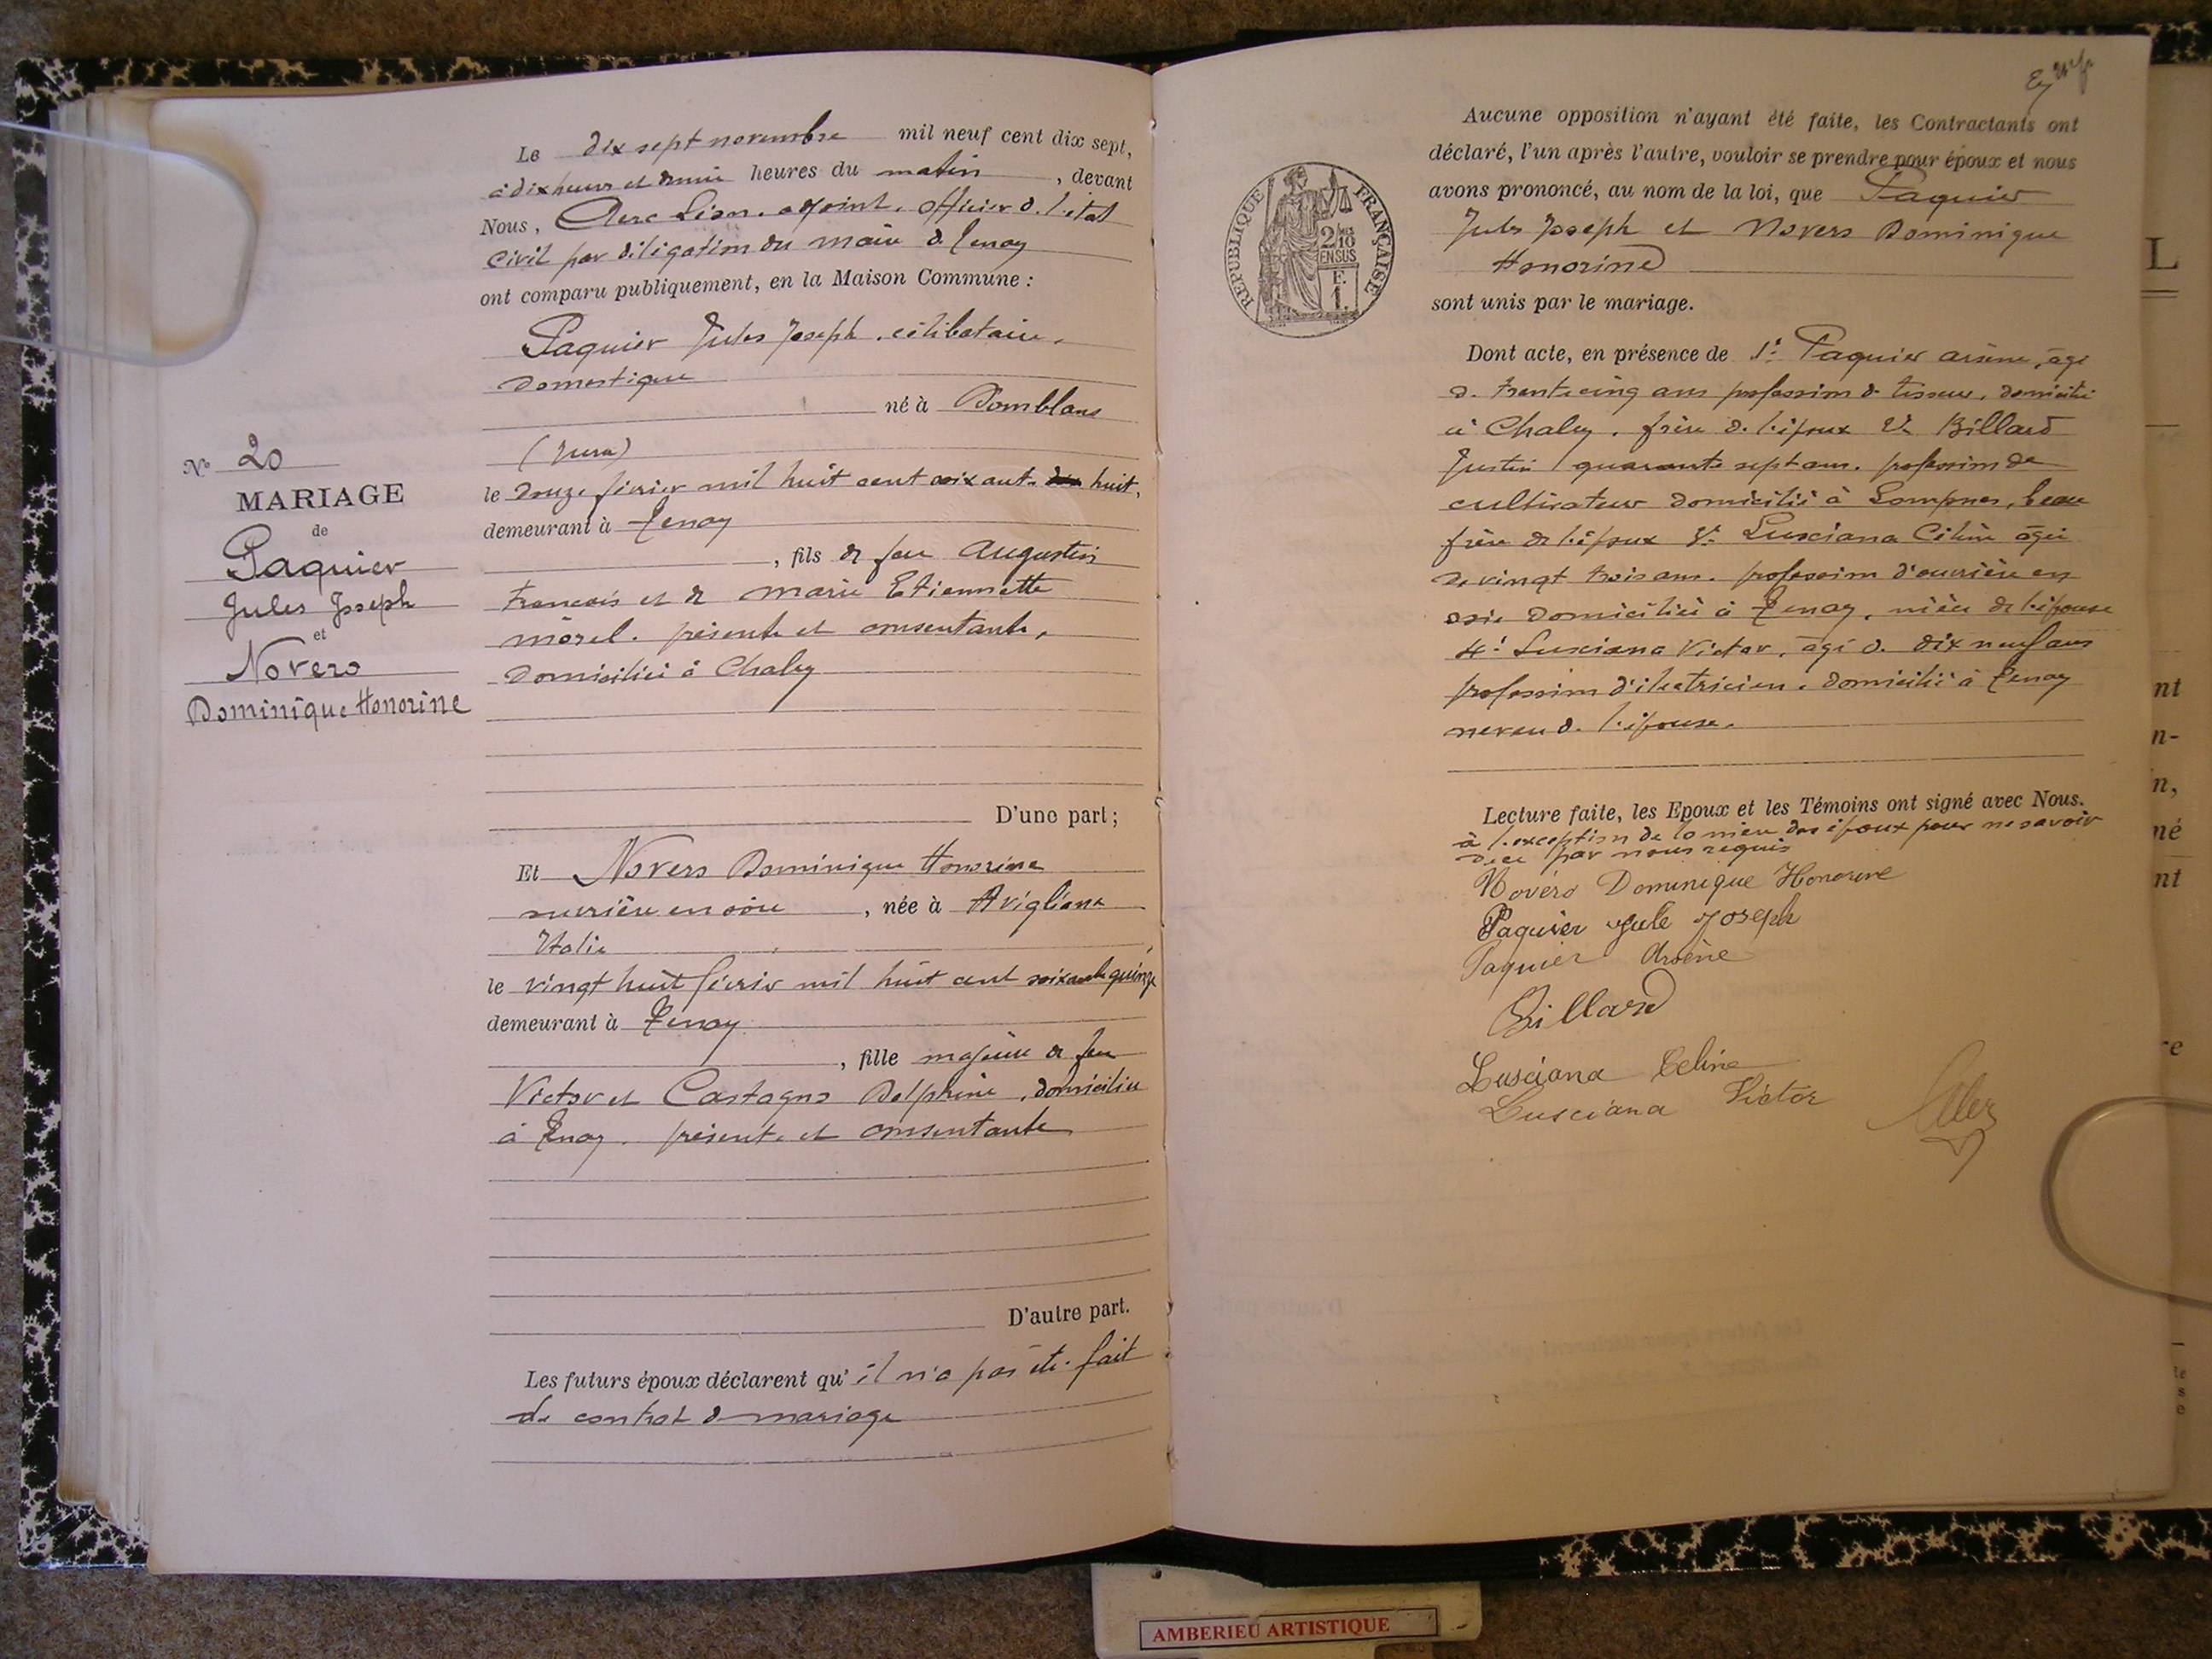 N° 20
MARIAGE
de
Paquier
Jules Joseph
et
Novero
Dominique Honorine
Le dix sept novembre mil neuf cent dix sept,
à dix heures et demie heures du matin, devant
Nous, Clerc Léon, adjoint, officier de l'etat
civil par délégation du maire de Tenay
ont comparu publiquement, en la Maison Commune :
Paquier Jules Joseph, célibataire,
Domestique
né à Domblans
(Jura)
le douze février mil huit cent soixante huit,
demeurant à Tenay
, fils de feu Augustin
François et de Marie Etiennette
Morel. présente et consentante,
Domiciliée à Chaley
D'une part ;
Et Novero Dominique Honorine
ouvrière en soie, née à Avigliana
Italie
le vingt huit février mil huit cent soixante quinze
demeurant à Tenay
, fille majeure de feu
Victor et Castagno Delphine, domiciliée
à Tenay. présente et consentante
D'autre part.
Les futurs époux déclarent qu'il n'a pas été fait
de contrat de mariage
REPUBLIQUE FRANÇAISE
2/10
EN SUS
F.
1.
Aucune opposition n'ayant été faite, les Contractants ont
déclaré, l'un après l'autre, vouloir se prendre pour époux et nous
avons prononcé, au nom de la loi, que Paquier
Jules Joseph et Novero Dominique
Honorine
sont unis par le mariage.
Dont acte, en présence de 1° Paquier Arsène, âgé
de trente cinq ans profession de tisseur, domicilié
à Chaley, frère de l'époux 2° Billard
Justin quarante sept ans. profession de
cultivateur domicilié à Lompnes, beau
frère de l'époux 3° Lusciana Céline âgée
de vingt trois ans. profession d'ouvrière en
soie domiciliée à Tenay, nièce de l'épouse
4° Lusciana Victor, âgé de dix neuf ans
profession d'électricien, domicilié à Tenay
neveu de l'épouse.
Lecture faite, les Epoux et les Témoins ont signé avec Nous.
à l'exception de la mère des époux pour ne savoir
par nous requis
Novéro Dominique Honorine
Paquier Jule Joseph
Paquier Arsène
Billard
Lusciana Celine
Lusciana Victor
Clerc
AMBERIEU ARTISTIQUE